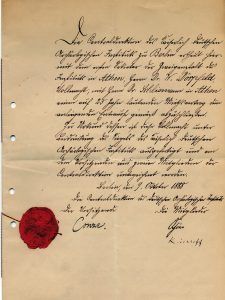 Die Centraldirektion des Kaiserlich Deutschen
Archäologischen Instituts zu Berlin ertheilt hier
mit dem ersten Sekretar der Zweiganstalt des
Instituts in Athen, Herrn Dr. W. Dörpfeld
Vollmacht, mit Herrn Dr. Schliemann in Athen
einen auf 25 Jahre lautenden Miethvertrag
gerichtlich abzuschließen.
Zu Urkund dessen ist diese Vollmacht unter
des Siegels des Kaiserlich Deutschen
Archäologischen Instituts ausgefertigt und von
dem Vorsitzenden und zwei Mitgliedern der
Centraldirektion
Berlin, 9. Oktober 1888
Die Centraldirektion des deutschen Archäologischen Instituts
Der Vorsitzende Die Mitglieder
Conze.